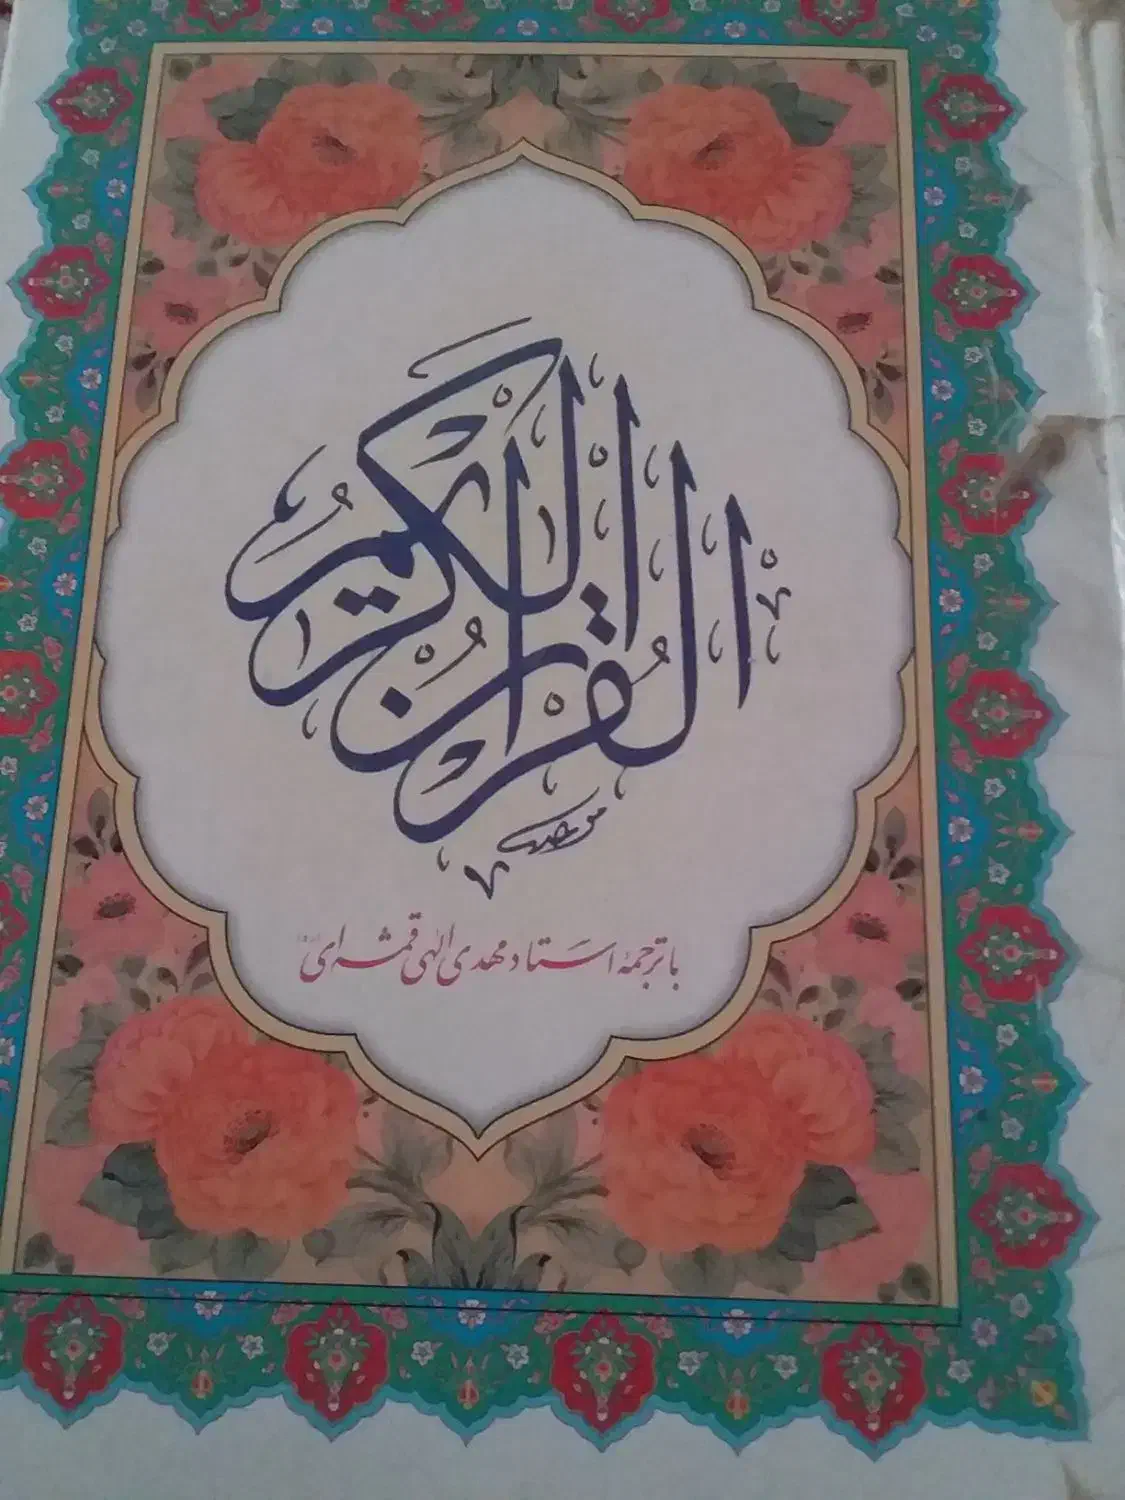 القرآن الكريم
با ترجمهٔ استاد مهدی الهی قمشه‌ای